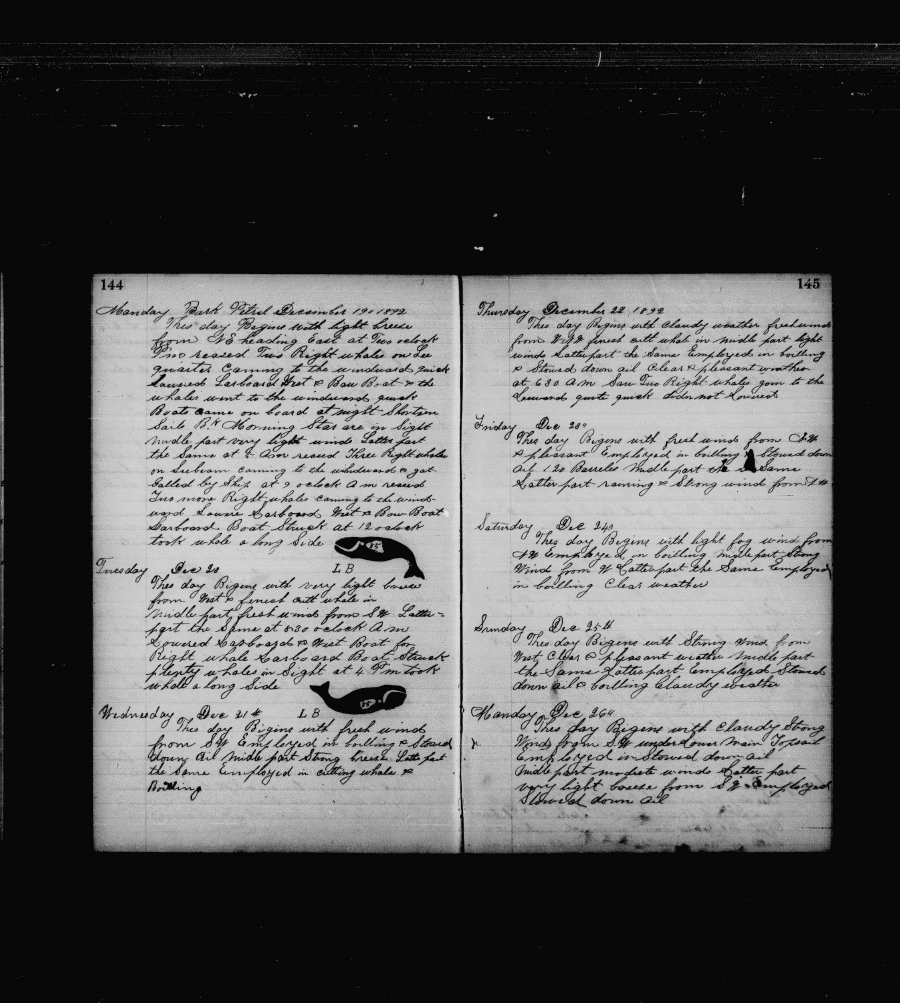 144
Manday Bark Petrel December 19th 1892
This day Begins with light breeze
from NE heading East at Two oclock
Pm reased Two Right whales on Lee
quarter caming to the windward quick
Loured Larboard West & Bow Boat & the
whales went to the windward quick
Boats came on board at night Shorten
Sails Bk Morning Star are in Sight
Middle part very light winds Latter part
the Same at Am reased Three Right whales
on Leebeam caming to the windward & got
Galled by Ship at 9 oclock Am reased
Two more Right whales caming to the wind-
ward Louer Larboard West & Bow Boat
Larboard Boat Struck at 12 oclock
took whale a long Side
LB
Tuesday Dec 20
Thes day Bigens with very light breeze
from West & finest cutt whale in
Middle part fresh winds from SW Latter-
part the Same at 8:30 oclock Am
Loured Larboard & West Boat for
Right whale Larboard Boat Struck
plenty whales in Sight at 4 Pm took
whale a long Side
LB
Wednesday Dec 21st
Thes day Bigens with fresh wind
from SW Employed in boilling & Stowed
down oil Middle part Strong breeze Latte part
the Same Employed in cutting whale &
Boilling
145
Thursday December 22 1892
Thes day Bigens with claudy weather fresh winds
from finest cutt whale in middle part light
winds Latter part the Same Employed in boilling
& Stowed down oil Clear & pleasant weather
at 630 Am Saw Two Right whales goin to the
Leeward quite quick did n not Lowered
Friday Dec
Thes day Bigens with fresh winds from NW
& pleasant Employed in boilling & Stowed down
oil 120 Barreles Middle part the Same
Latter part raining & Strong wind from NW
Saturday Dec 24
Thes day Bigens with light fog wind from
NW Employed in boilling middle part Strong
Wind from W Latter part the Same Employed
in boilling Clear weather
Sunday Dec 25th
Thes day Bigens with Strong wind from
West Clear & pleasant weather Middle part
the Same Latter part Employed Stowed
down oil & boilling Claudy weather
Manday Dec 26th
Thes day Begins with claudy Strong
Wind from SW under Louer Main Topsail
Employed in Stowed down oil
Middle part modest winds Latter part
very light breeze from SW Employed
Stowed down oil